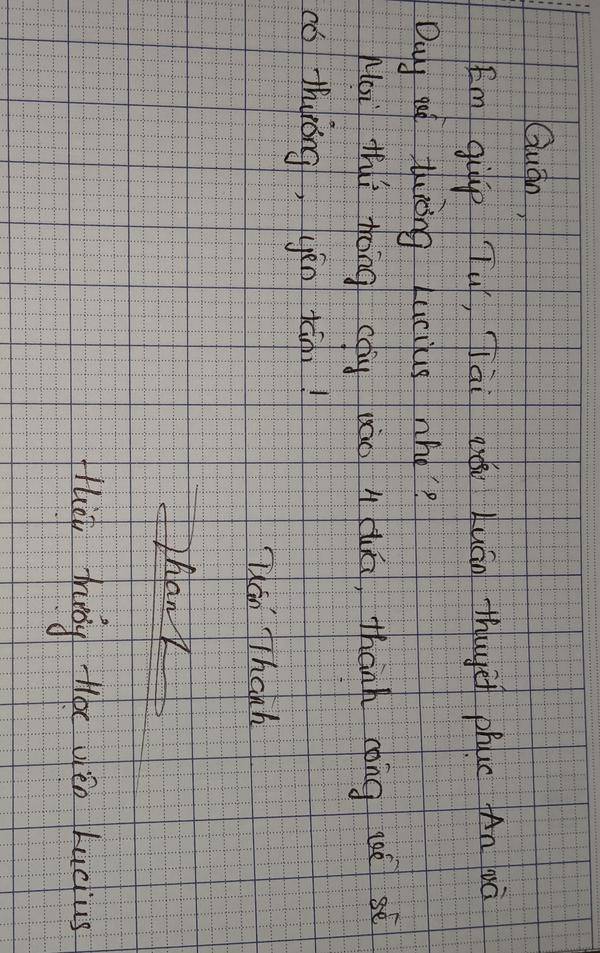 Quân,
Em giúp Tú, Tài với Luân thuyết phục An và
Duy về trường Lucius nhé?
Mọi thứ trông cậy vào 4 đứa, thành công về sẽ
có thưởng, yên tâm!
Tuấn Thành
Thành
Hiệu trưởng Học viện Lucius